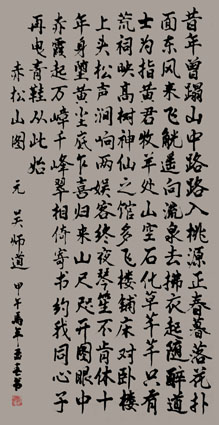 昔年曾蹋山中路路入桃源正春暮落花扑
面东风来飞觥遥向流泉去拂衣起随醉道
士为指黄君牧羊处山空石化草芊芊只有
荒祠映高树神仙之馆多飞楼铺床对卧楼
上头松声涧响两娱客终夜琴筑不肯休十
年身堕黄尘底乍喜归来山尺咫开图眼中
赤霞起万嶂千峰翠相倚寄书约我同心子
再曳青鞋从此始
赤松山图 元 吴师道 甲午 书